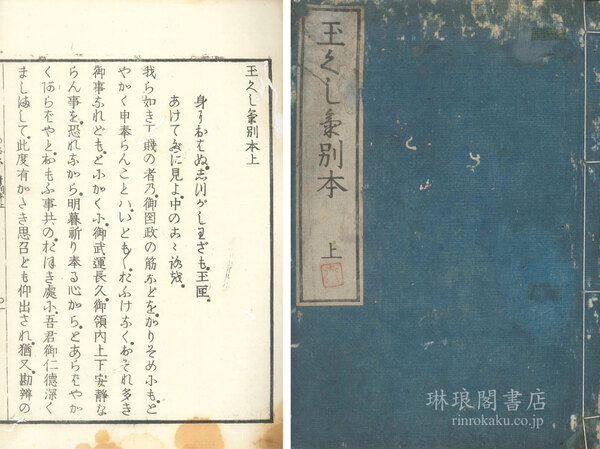 玉くし氣別本
上
玉くし氣別本上
身におはぬ、志づがしわざも玉匣、
あけてだに見よ中のこゝろを、
我ら如き下賤の者乃、御国政の筋などを、かりそめにもと
やかく申奉らんことハ、いとも〱、おふけなくおそれ多き
御事なれども、とにかくに、御武運長久御領内上下安静な
らん事を、恐れながら、明暮祈り奉る心から、とあらばやか
くあらばやと、おもふ事共の、おほき處に、吾君御仁德深く
ましまして、此度有がたき思召とも仰出され、猶又勘辨の
琳琅閣書店
rinrokaku.co.jp